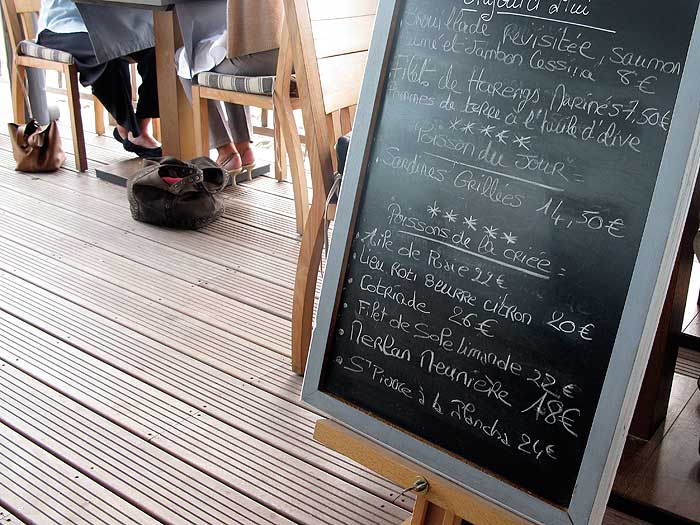 Aujourd'hui
Brouillade Revisitée, Saumon
fumé et Jambon 8€
Filet de Harengs Marinés 7,50€
Pommes de terre à l'huile d'olive
*****
Poisson du Jour
Sardines Grillées 14,50€
*****
Poissons de la criée =
. Aile de Raie 22€
. Lieu Roti Beurre citron 20€
. Cotriade 26€
. Filet de Sole limande 22€
. Merlan Meunière 18€
. St Pierre à la Plancha 24€